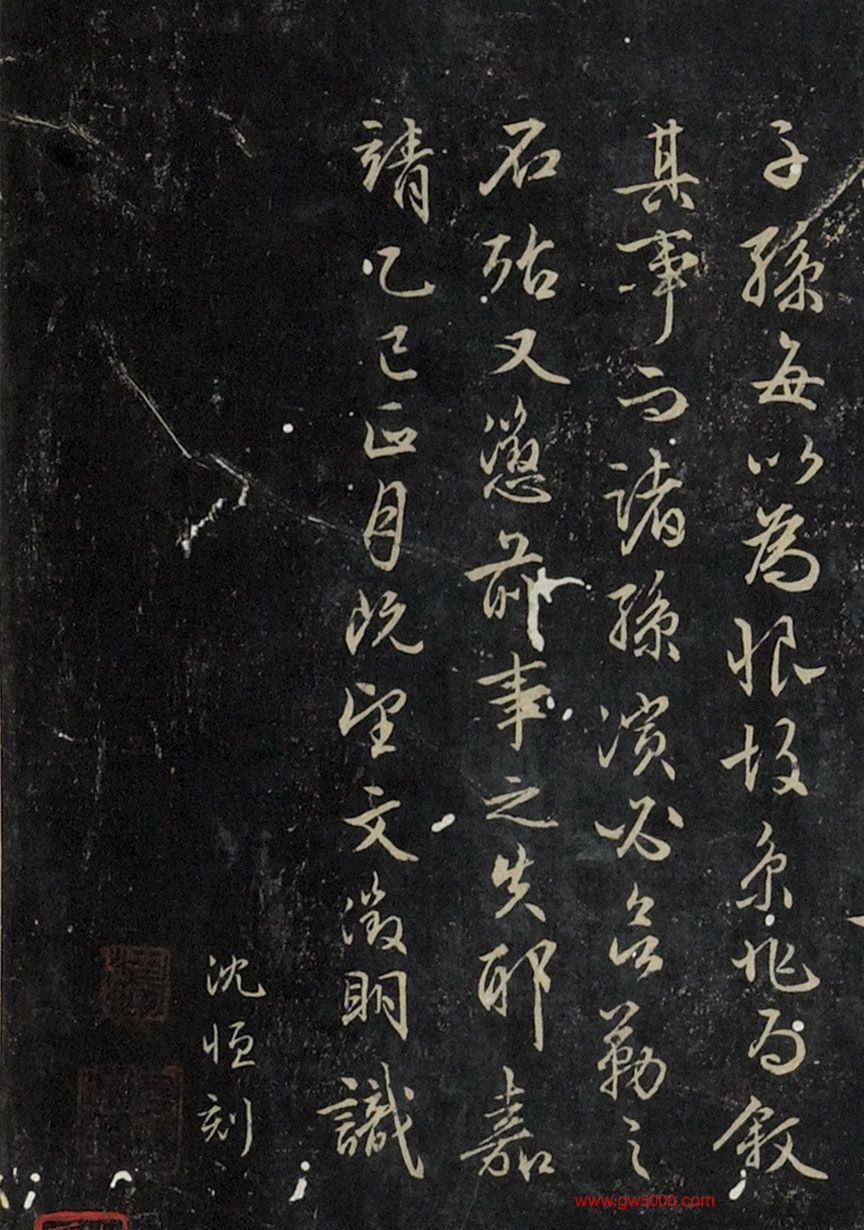 子孫每以為恨故余為叙
其事而諸孫濆必勒之
石殆又懲前事之失耶嘉
靖乙巳正月既望文徵明識
沈恒刻
www.gw5000.com